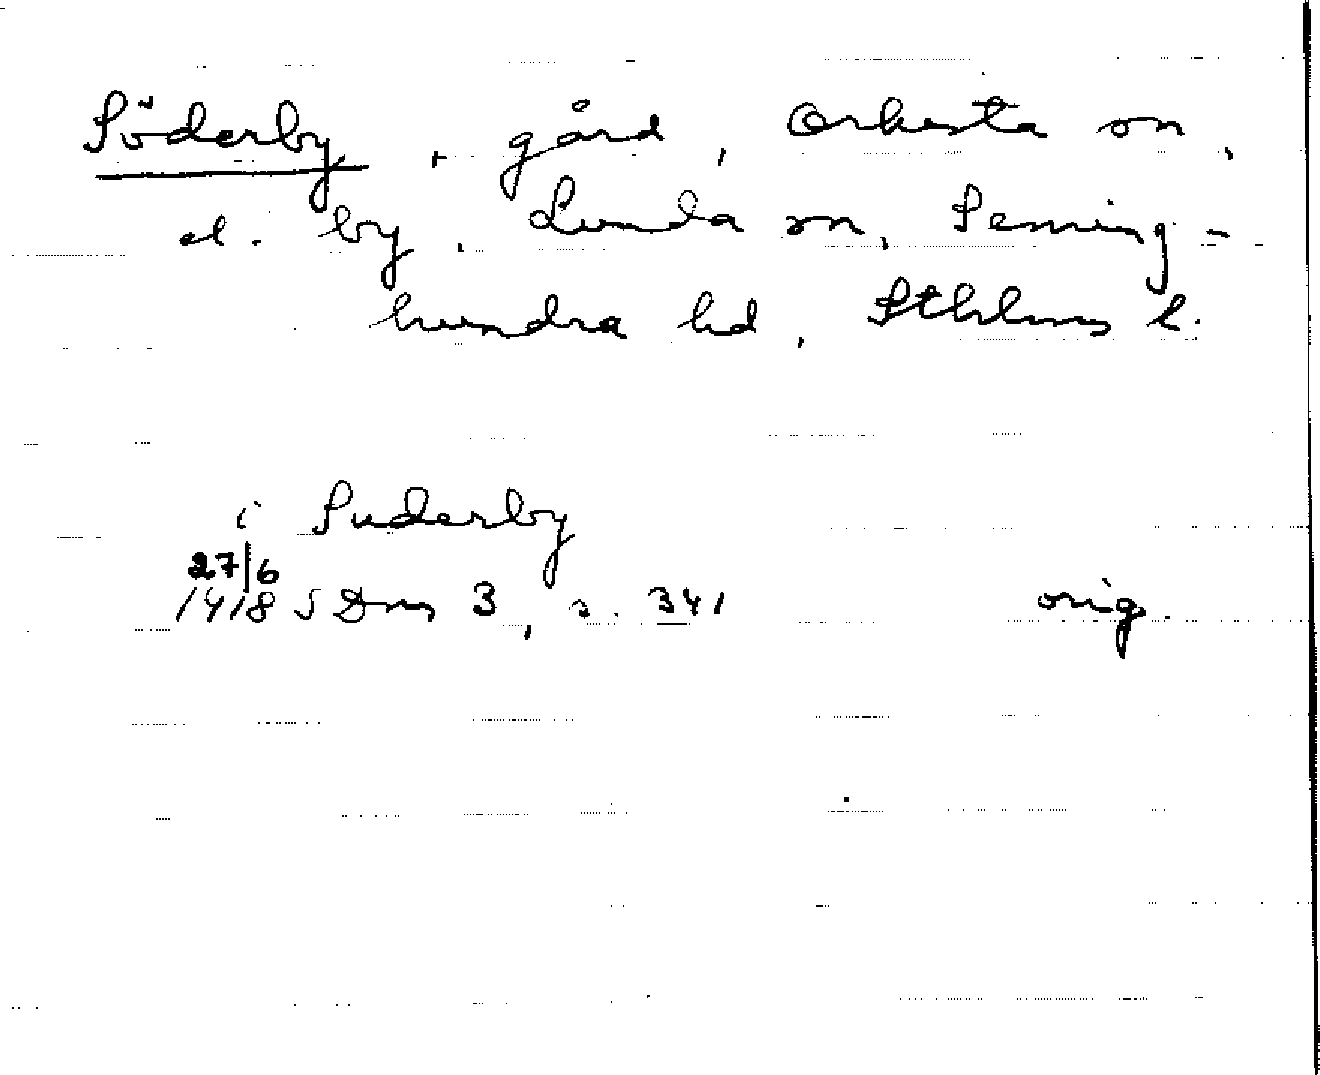 Söderby, gård, Orkesta sn,
el. by, Lunda sn, Seming-
hundra hd, Sthlms l.
i Suderby
27/6
1418 SDns 3, s. 341 orig.